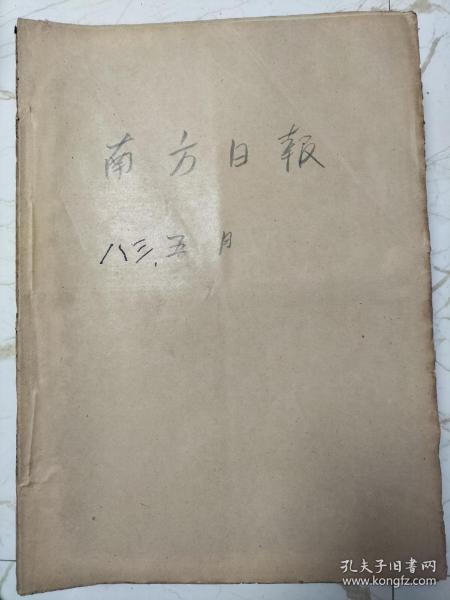 南方日报
八三.五月
孔夫子旧书网
www.kongfz.com